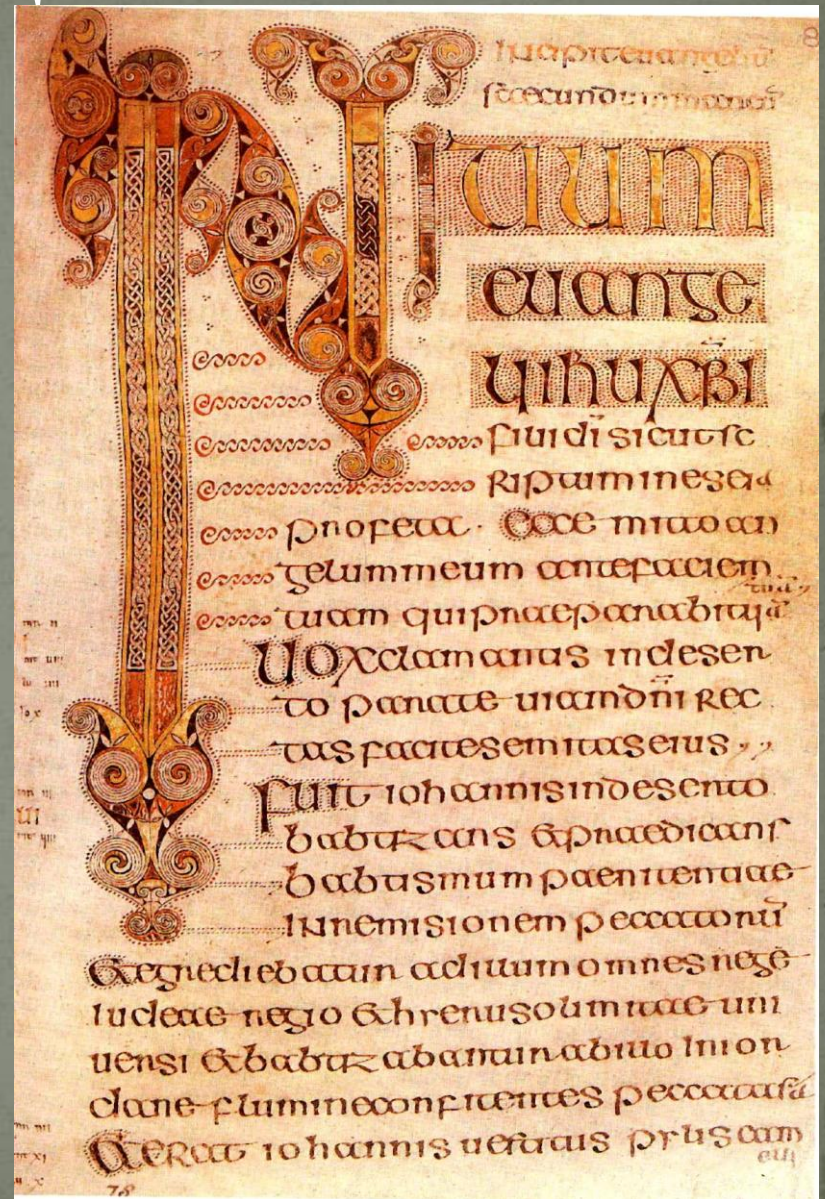 8
secundum
INITIUM
EUANGE
LII IHU XPI
filii dī sicut sc
riptum in eseia
profeta · Ecce mitto an
gelum meum ante faciem
tuam qui praeparabit
Uox clamantis in deser
to parate uiam dn̄i rec
tas facite semitas eius
Fuit iohannis in deserto
babtizans & praedicans
babtismum paenitentiae
in remisionem peccatorū
& egrediebatur ad illum omnes
iudeae regio & hierusolimitae uni
uersi & babtizabantur ab illo in ior
dane flumine confitentes peccata
& erat iohannis uestitus pylis cam
elli
78